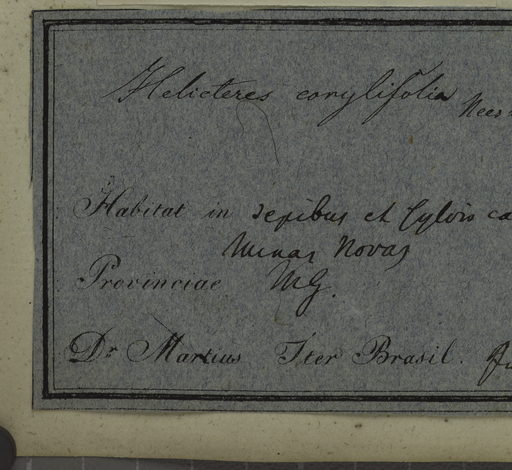 Helicteres corylifolia Nees
Habitat in sepibus et sylvis ca
Minas Novas
Provinciae MG.
Dr. Martius Iter Brasil. Ju